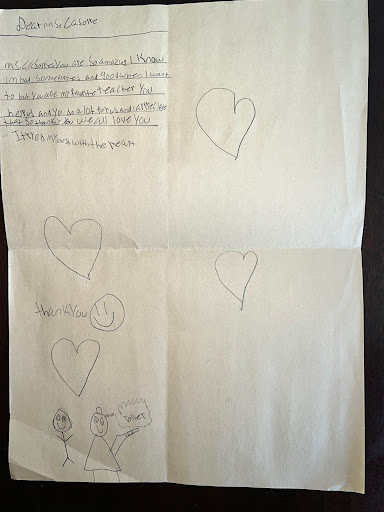 Dear ms. Casotte
ms. Casotte you are so amazing I know
Im bad sometimes and good when I want
to but you are my favorite teacher you
help us and you do a lot for us and I appreciate
that so thank you we all love you
I tried my best with the heart
thank you